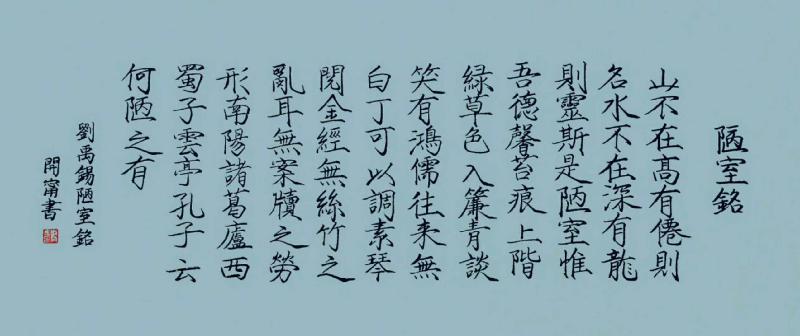 陋室銘
山不在高有僊則
名水不在深有龍
則靈斯是陋室惟
吾德馨苔痕上階
綠草色入簾青談
笑有鴻儒往来無
白丁可以調素琴
閱金經無絲竹之
亂耳無案牘之勞
形南陽諸葛廬西
蜀子雲亭孔子云
何陋之有
劉禹錫陋室銘
開甯書